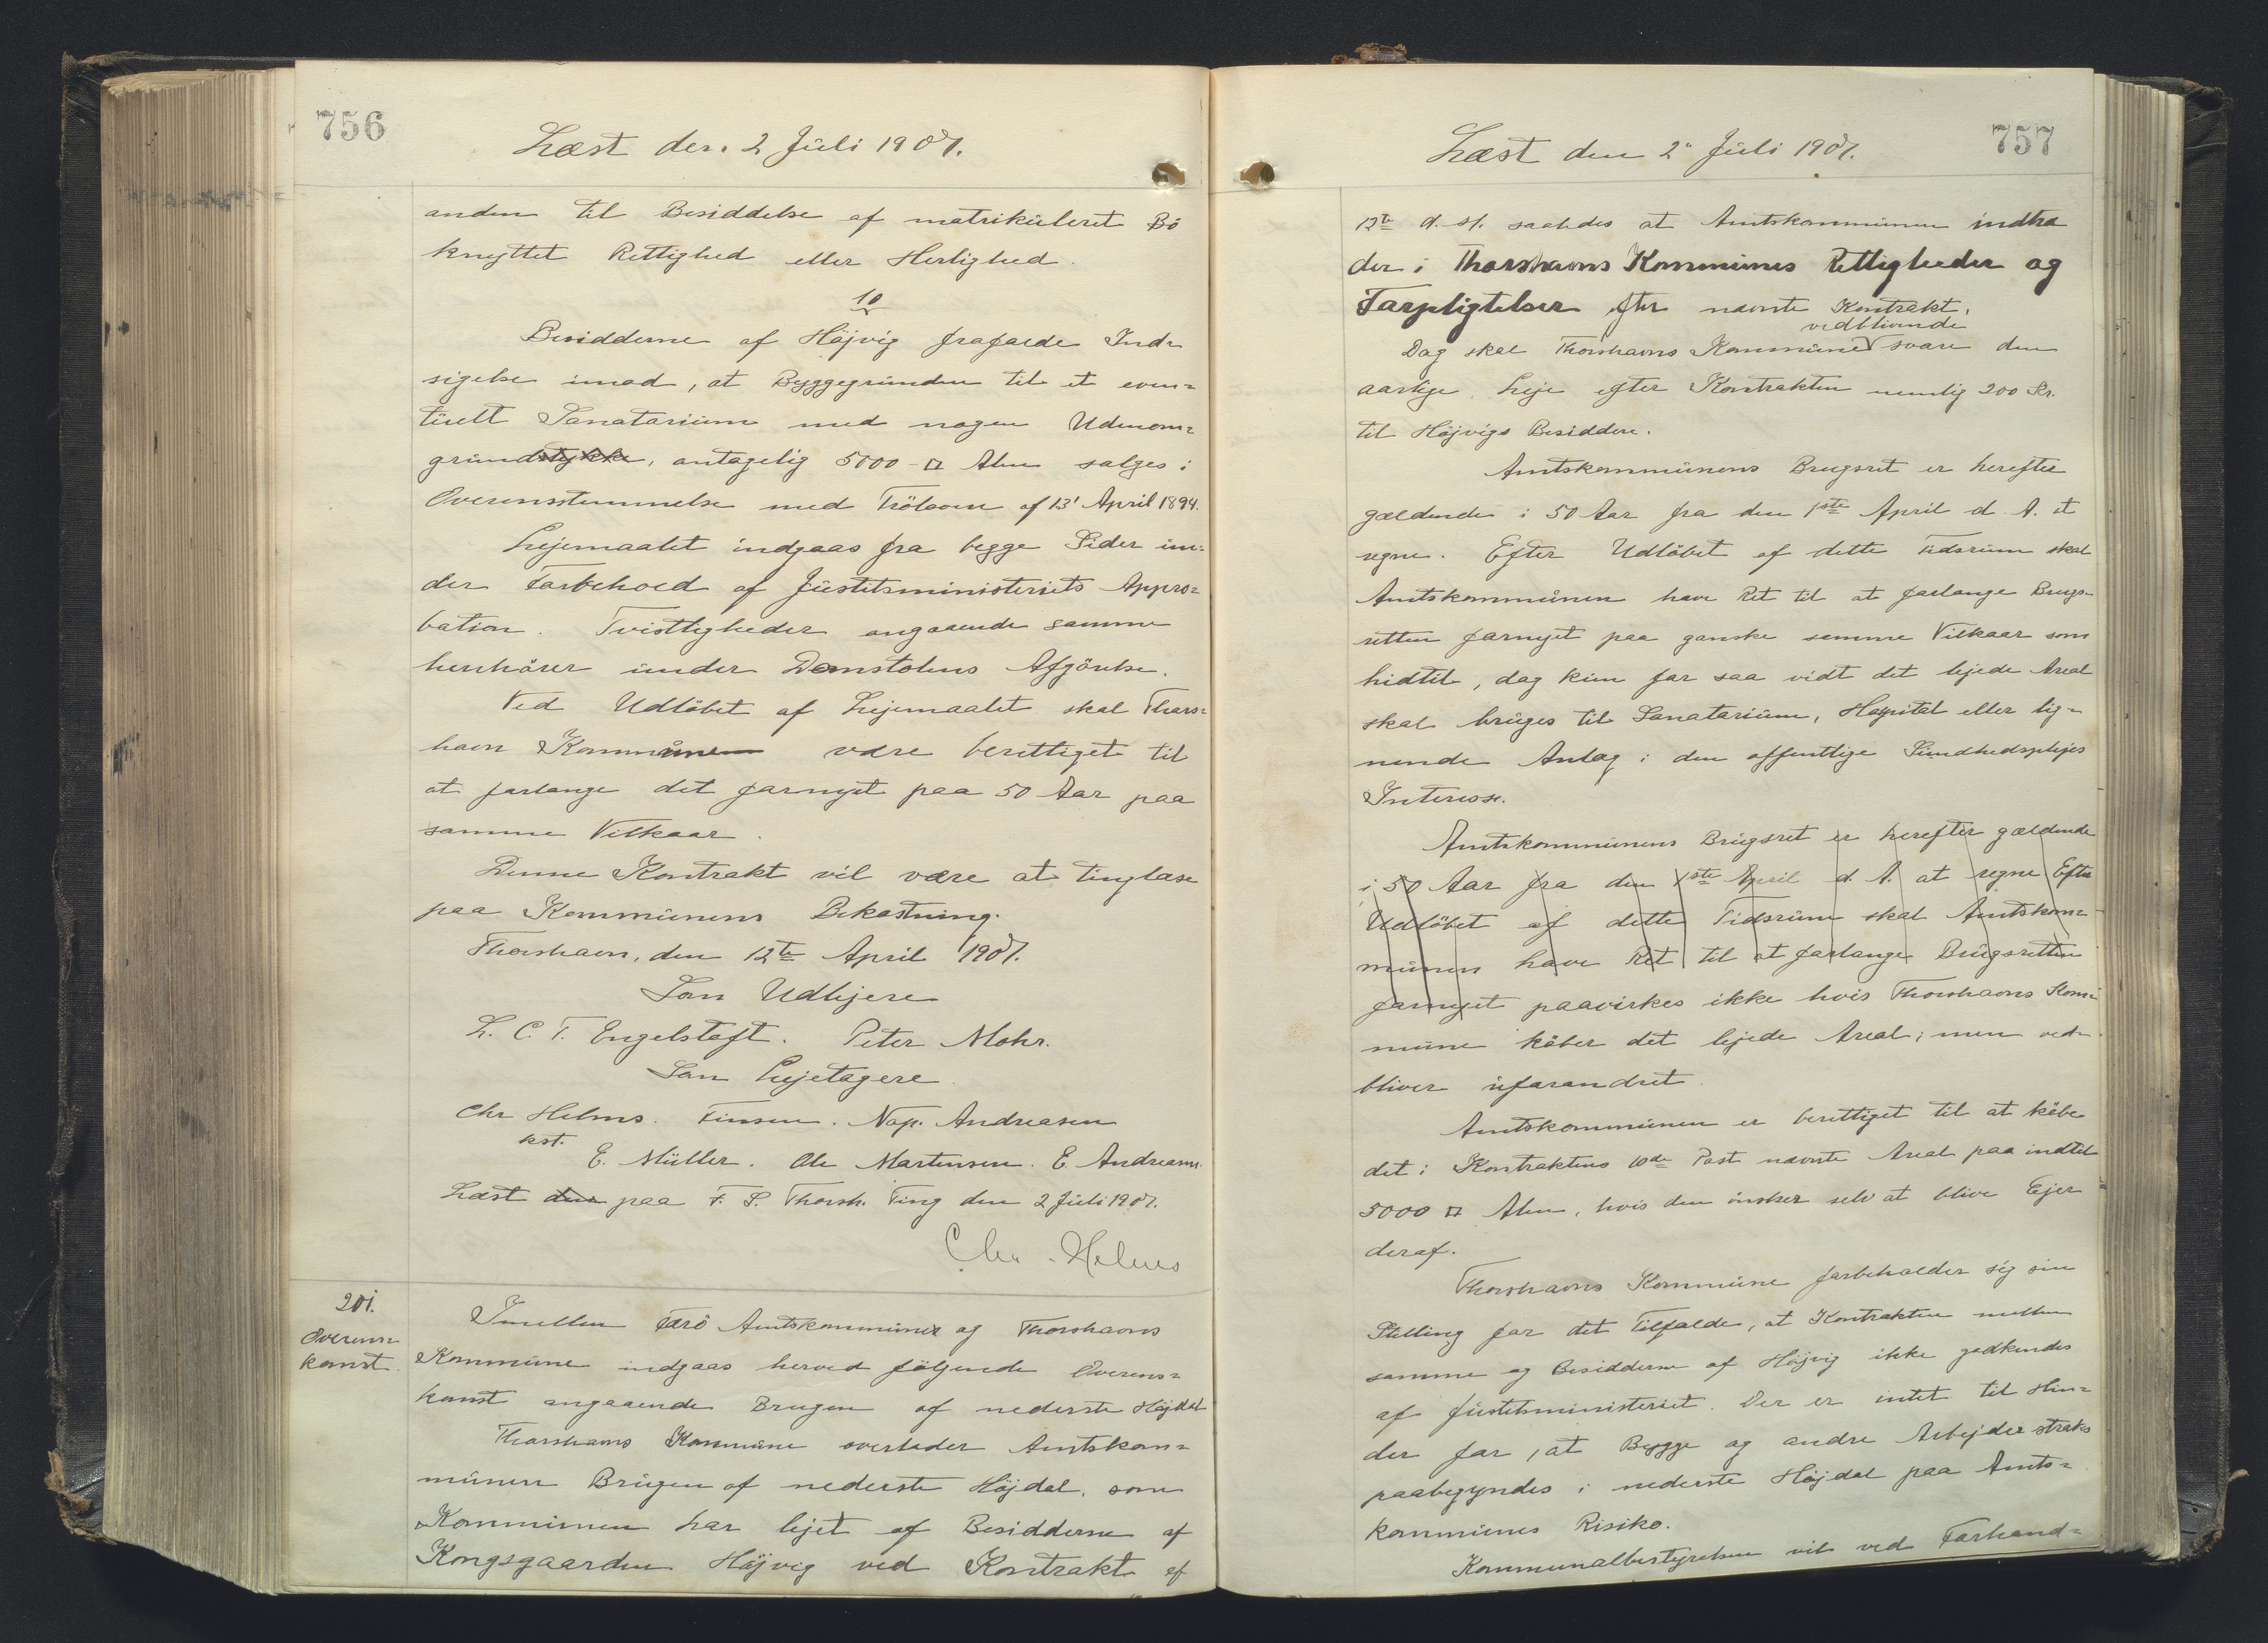 756
Læst den 2 Juli 1907.
anden til Besiddelse af matrikuleret Bö
knyttet Rettighed eller Herlighed.
10
Besidderne af Höjvig frafalde Ind-
sigelse imod, at Byggegrunden til et even-
tuelt Sanatorium med nogen Udenom-
grundstykke, antagelig 5000 □ Alen sælges i
Overensstemmelse med Fröloven af 13' April 1894.
Lejemaalet indgaas fra begge Sider un-
der Forbehold af Justitsministeriets Appro-
bation. Tvistligheder angaaende samme
henhörer under Domstolens Afgörelse.
Ved Udlöbet af Lejemaalet skal Thors-
havn Kommune være berettiget til
at forlange det fornyet paa 50 Aar paa
samme Vilkaar.
Denne Kontrakt vil være at tinglæse
paa Kommunens Bekostning.
Thorshavn, den 12te April 1907.
Som Udlejere
L. C. T. Engelstoft. Peter Mohr.
Som Lejetagere
Chr Helms. Finsen. Nap. Andreasen
kst.
E. Müller. Ole Martensen. E. Andreasen.
Læst den paa F. S. Thorsh. Ting den 2 Juli 1907.
Chr. Helms
201.
Overens-
komst.
Imellem Færö Amtskommune og Thorshavns
Kommune indgaas herved fölgende Overens-
komst angaaende Brugen af nederste Höjdal
Thorshavns Kommune overlader Amtskom-
munen Brugen af nederste Höjdal, som
Kommunen har lejet af Besidderne af
Kongsgaarden Höjvig ved Kontrakt af
757
Læst den 2' Juli 1907.
12te d. M. saaledes at Amtskommunen indtræ
der i Thorshavns Kommunes Rettigheder og
Forpligtelser efter nævnte Kontrakt.
vedblivende
Dog skal Thorshavns Kommune svare den
aarlige Leje efter Kontrakten nemlig 200 Kr.
til Höjvigs Besiddere.
Amtskommunens Brugsret er herefter
gældende i 50 Aar fra den 1ste April d. A. at
regne. Efter Udlöbet af dette Tidsrum skal
Amtskommunen have Ret til at forlange Brugs-
retten fornyet paa ganske samme Vilkaar som
hidtil, dog kun for saa vidt det lejede Areal
skal bruges til Sanatorium, Hospital eller lig-
nende Anlæg i den offentlige Sundhedsplejes
Interesse.
Amtskommunens Brugsret er herefter gældende
i 50 Aar fra den 1ste April d. A. at regne Efter
Udlöbet af dette Tidsrum skal Amtskom-
munen have Ret til at forlange Brugsretten
fornyet paavirkes ikke hvis Thorshavns Kom-
mune köber det lejede Areal; men ved-
bliver uforandret.
Amtskommunen er berettiget til at köbe
det i Kontraktens 10de Post nævnte Areal paa indtil
5000 □ Alen, hvis den önsker selv at blive Ejer
deraf.
Thorshavns Kommune forbeholder sig sin
Stilling for det Tilfælde, at Kontrakten mellem
samme og Besidderne af Höjvig ikke godkendes
af Justitsministeriet. Der er intet til Hin-
der for, at Bygge og andre Arbejder straks
paabegyndes i nederste Höjdal paa Amts-
kommunes Risiko.
Kommunalbestyrelsen vil ved Forhand-